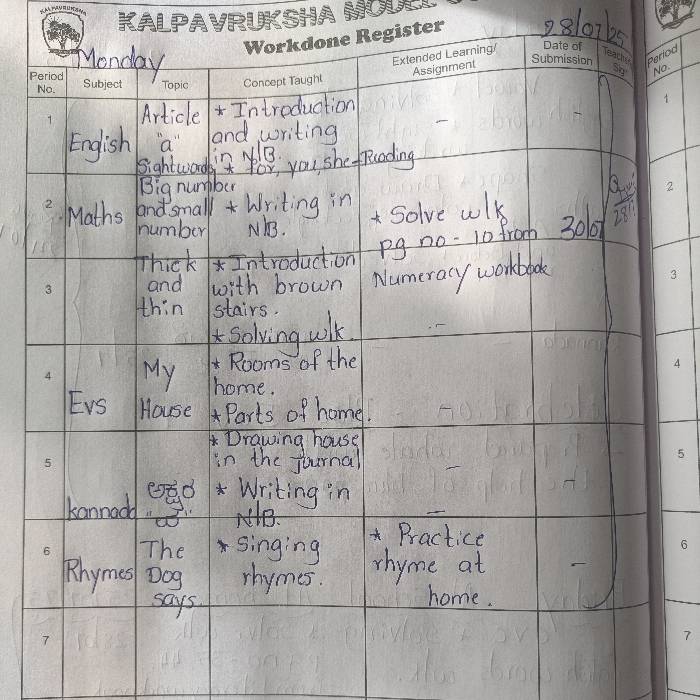 KALPAVRUKSHA MODEL
Workdone Register
Monday
28/07/25
Period No.
Subject
Topic
Concept Taught
Extended Learning/ Assignment
Date of Submission
1
English
Article
"a"
Sightwords
* Introduction
and writing
in N/B.
* for, you, she - Reading
-
-
2
Maths
Big number
and small
number
* Writing in
N/B.
* Solve w/k
pg no - 10 from
Numeracy workbook
30/07
3
Thick
and
thin
* Introduction
with brown
stairs.
* Solving w/k.
-
4
Evs
My
House
* Rooms of the
home.
* Parts of home.
* Drawing house
in the journal
-
5
kannada
ಅಕ್ಷರ
* Writing in
N/B.
-
6
Rhymes
The
Dog
says.
* Singing
rhymes.
* Practice
rhyme at
home.
-
7
Period No.
1
2
3
4
5
6
7